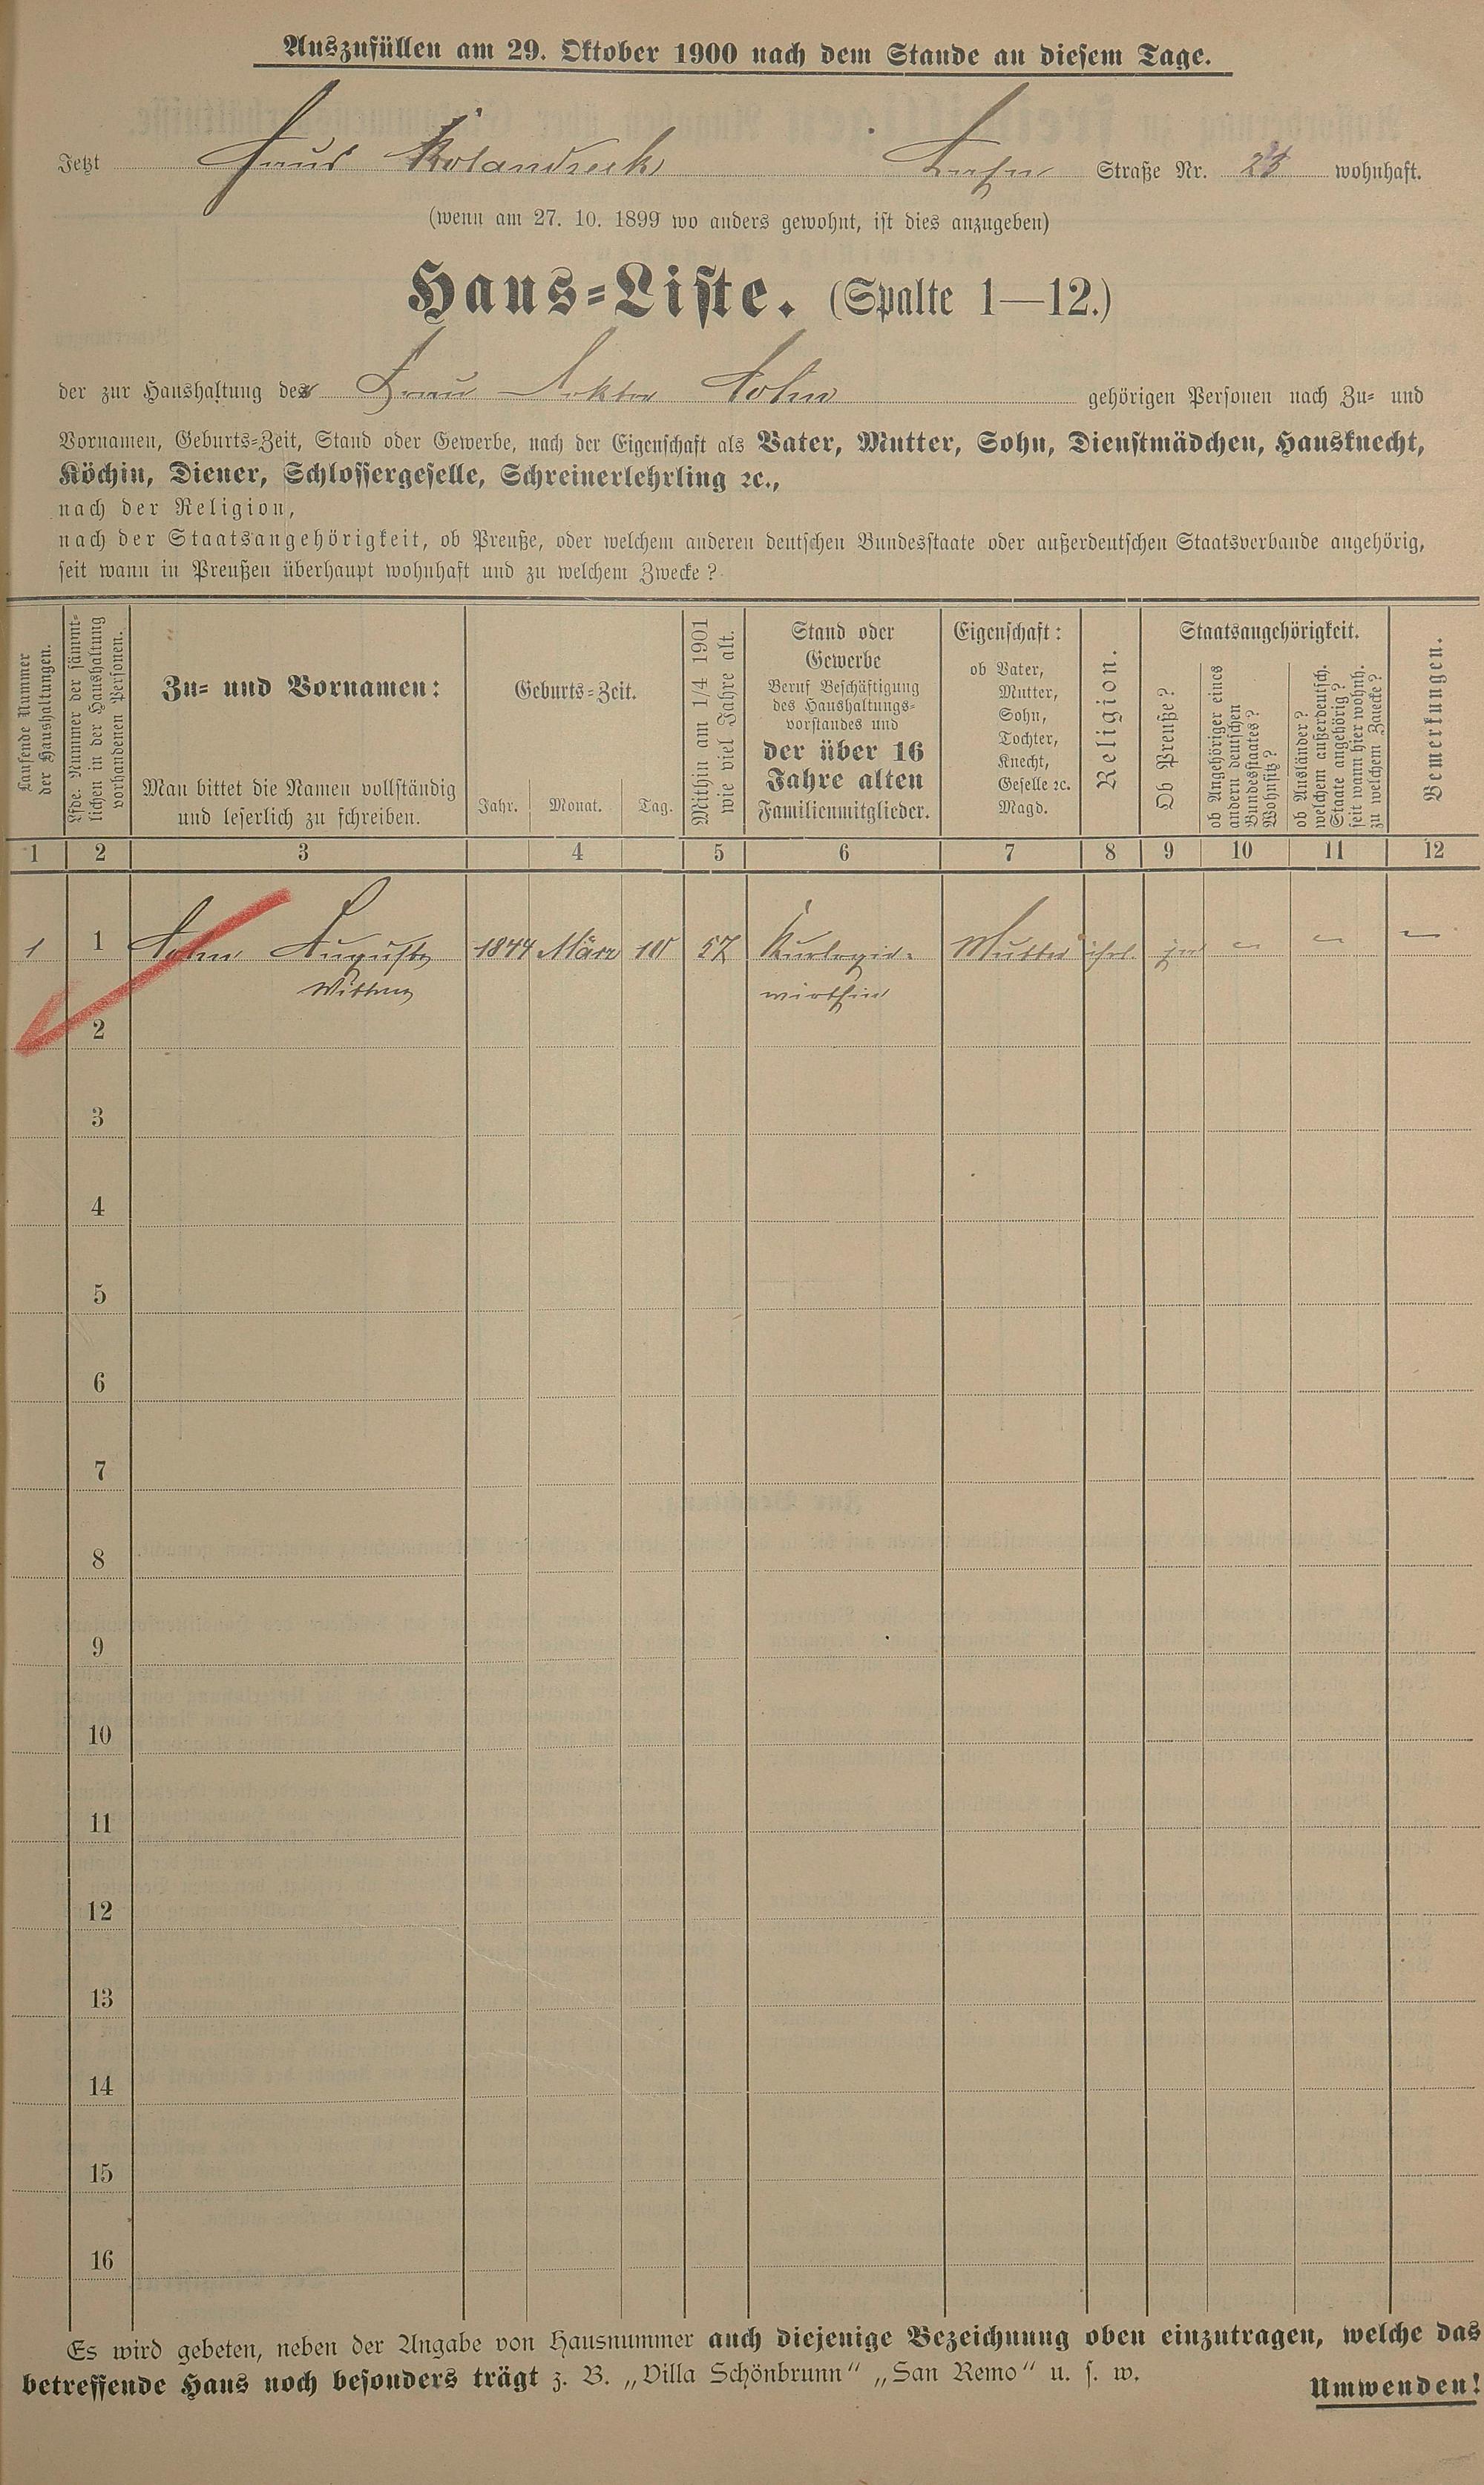 Auszufüllen am 29. Oktober 1900 nach dem Stande an diesem Tage.
Jetzt Haus Rolandseck Straße Nr. 23 wohnhaft.
(wenn am 27. 10. 1899 wo anders gewohnt, ist dies anzugeben)
Haus=Liste. (Spalte 1—12.)
der zur Haushaltung der Frau Doktor gehörigen Personen nach Zu= und
Vornamen, Geburts=Zeit, Stand oder Gewerbe, nach der Eigenschaft als Vater, Mutter, Sohn, Dienstmädchen, Hausknecht,
Köchin, Diener, Schlossergeselle, Schreinerlehrling ꝛc.,
nach der Religion,
nach der Staatsangehörigkeit, ob Preuße, oder welchem anderen deutschen Bundesstaate oder außerdeutschen Staatsverbande angehörig,
seit wann in Preußen überhaupt wohnhaft und zu welchem Zwecke?
Laufende Nummer
der Haushaltungen.
Lfde. Nummer der sämmt=
lichen in der Haushaltung
vorhandenen Personen.
Zu= und Vornamen:
Man bittet die Namen vollständig
und leserlich zu schreiben.
Geburts=Zeit.
Jahr. Monat. Tag.
Mithin am 1/4 1901
wie viel Jahre alt.
Stand oder
Gewerbe
Beruf Beschäftigung
des Haushaltungs=
vorstandes und
der über 16
Jahre alten
Familienmitglieder.
Eigenschaft:
ob Vater,
Mutter,
Sohn,
Tochter,
Knecht,
Geselle ꝛc.
Magd.
Religion.
Staatsangehörigkeit.
Ob Preuße?
ob Angehöriger eines
andern deutschen
Bundesstaates?
Wohnsitz?
ob Ausländer?
welchem außerdeutsch.
Staate angehörig?
seit wann hier wohnh.
zu welchem Zwecke?
Bemerkungen.
1 2 3 4 5 6 7 8 9 10 11 12
1 1 Auguste 1844 März 10 57 Kurlogir= Mutter ja — — —
Wittwe wirthin
2
3
4
5
6
7
8
9
10
11
12
13
14
15
16
Es wird gebeten, neben der Angabe von Hausnummer auch diejenige Bezeichnung oben einzutragen, welche das
betreffende Haus noch besonders trägt z. B. „Villa Schönbrunn“ „San Remo“ u. s. w.
Umwenden!